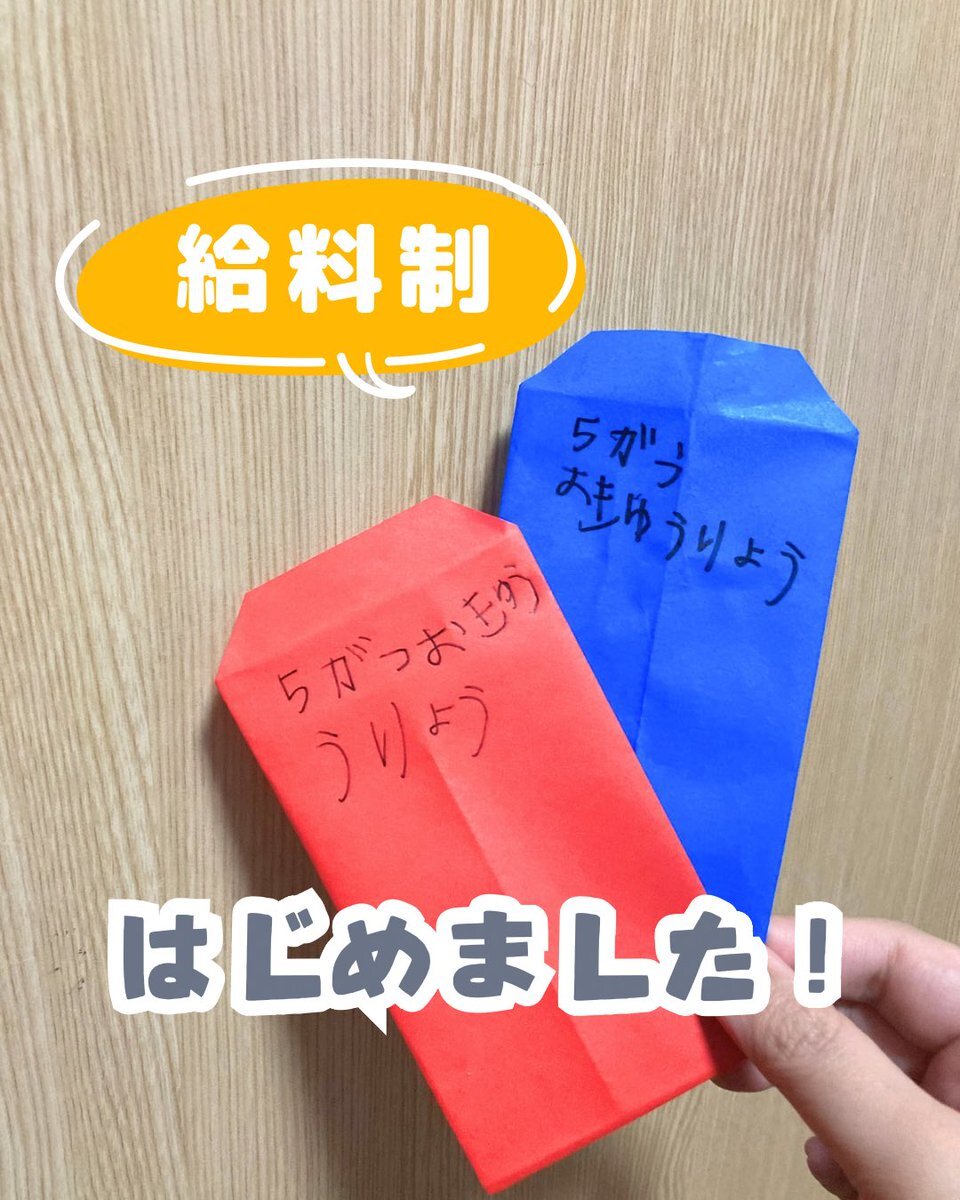 給料制
5がつ
おきゅうりょう
5がつおきゅう
うりょう
はじめました！